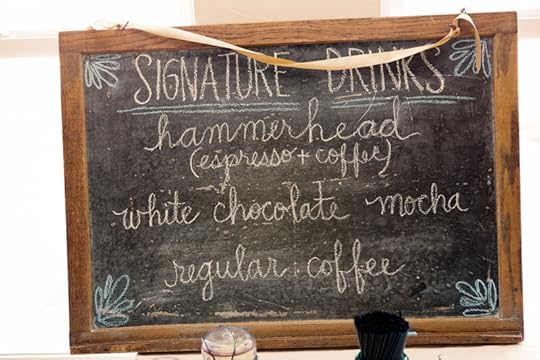 SIGNATURE DRINKS
hammerhead
(espresso + coffee)
white chocolate mocha
regular coffee